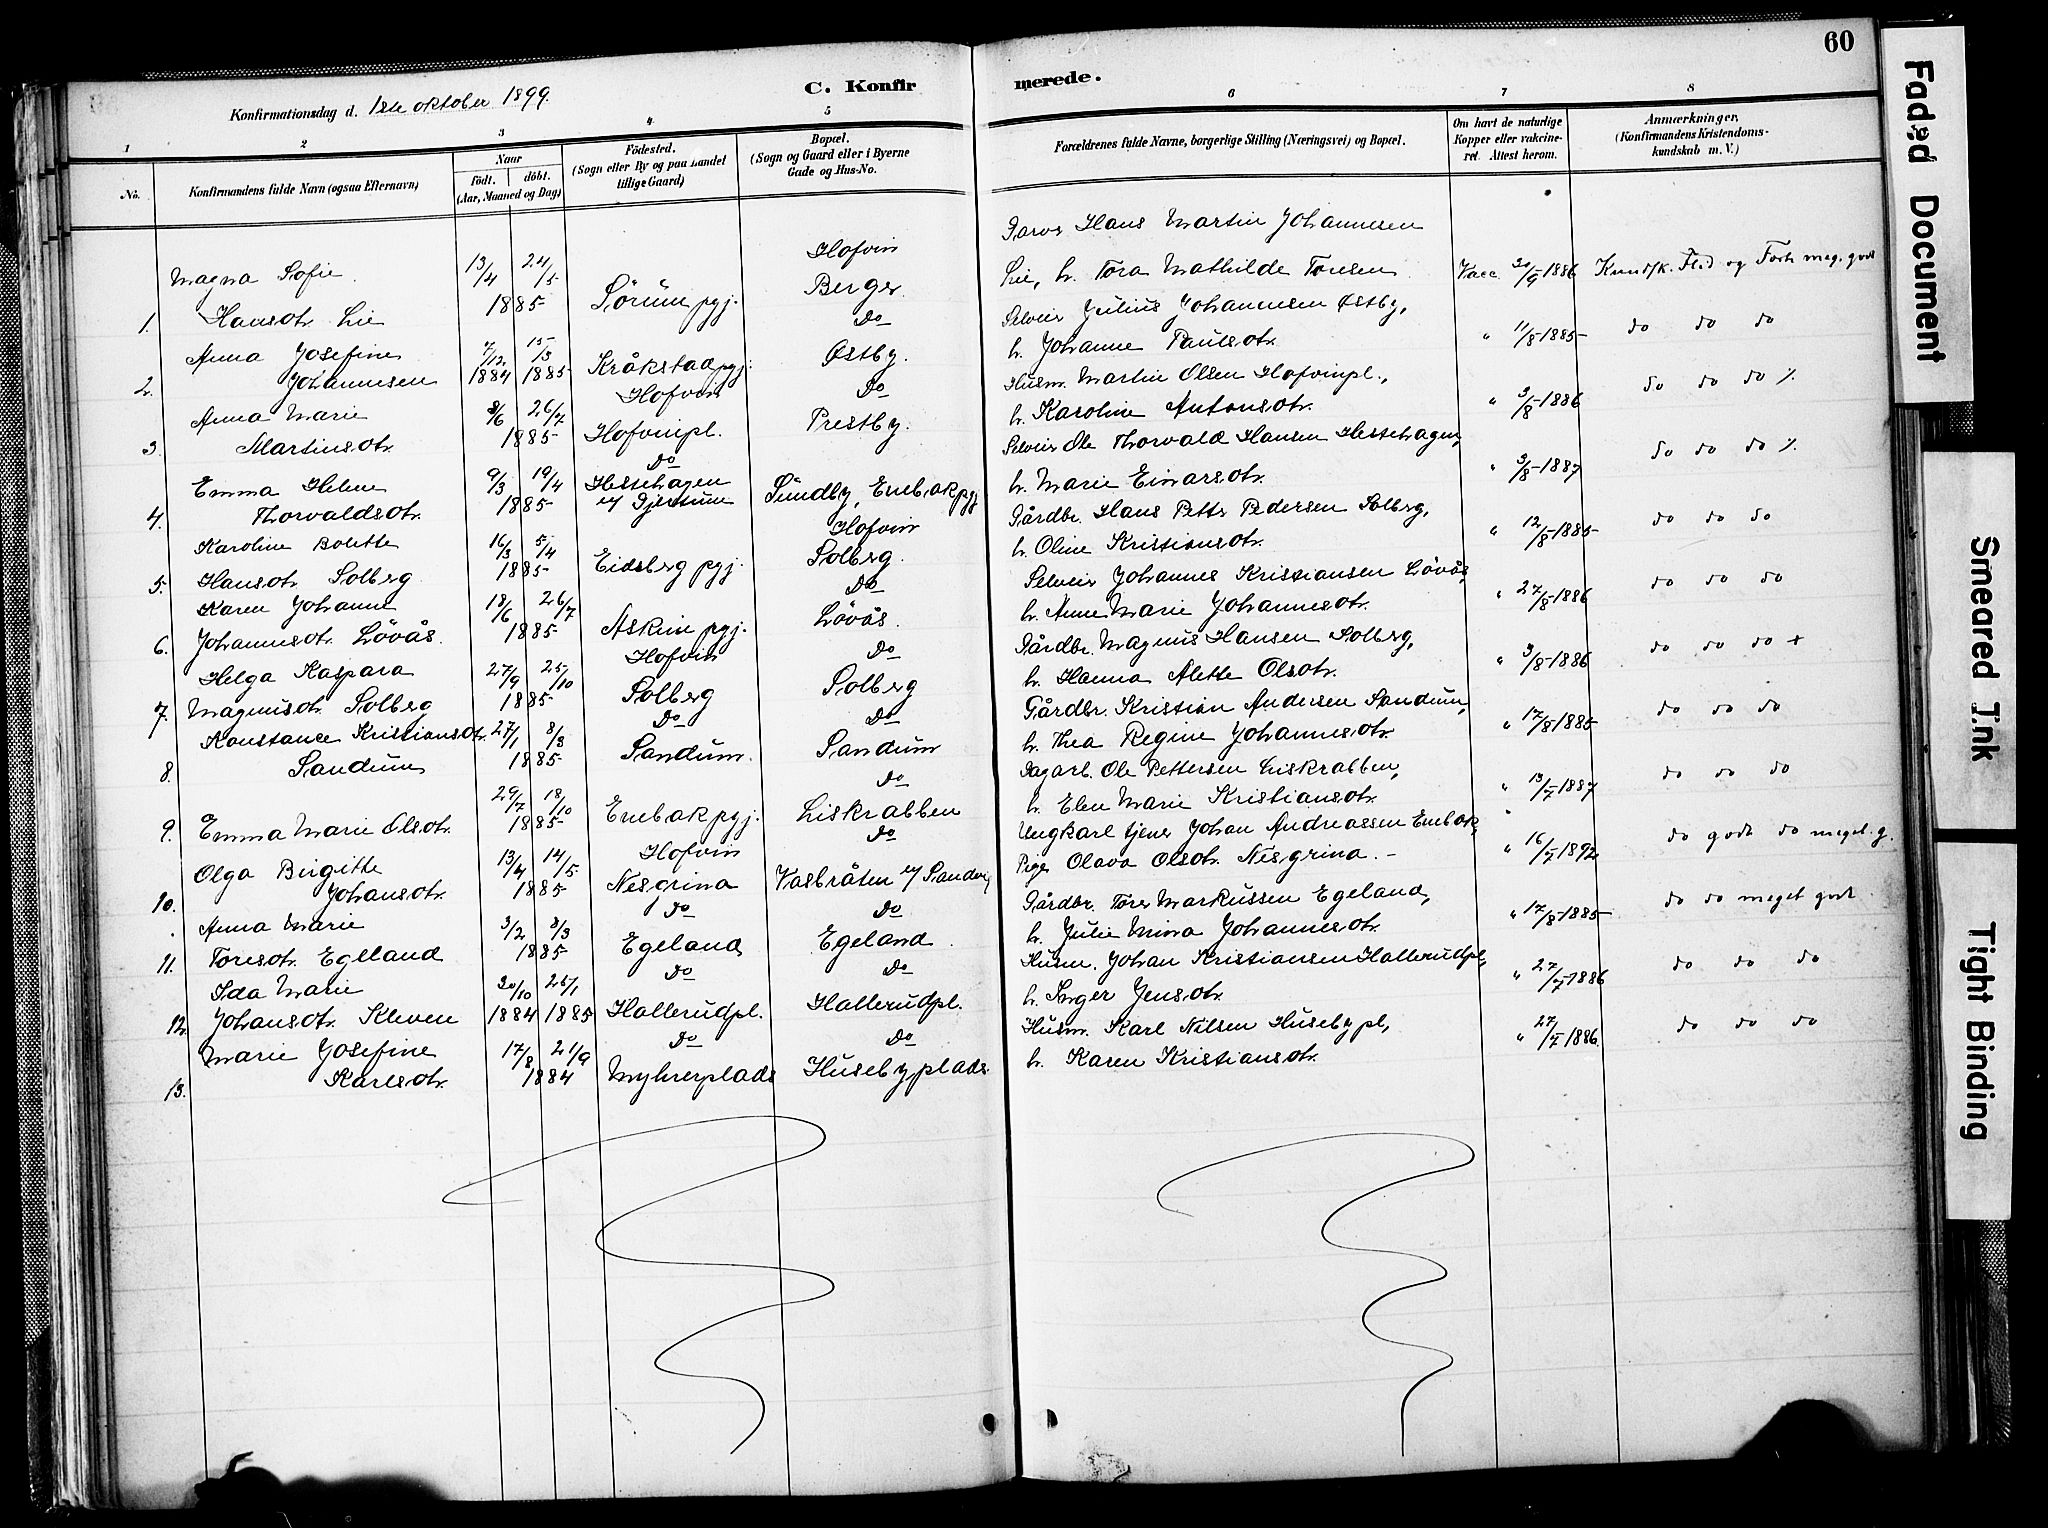 60
Konfirmationsdag d. 1ste oktober 1899.
C. Konfirmerede.
1 2 3 4 5 6 7 8
No.
Konfirmandens fulde Navn (ogsaa Efternavn)
Naar
födt. döbt.
(Aar, Maaned og Dag)
Födested.
(Sogn eller By og paa Landet
tillige Gaard)
Bopæl.
(Sogn og Gaard eller i Byerne
Gade og Hus-No.
Forældrenes fulde Navne, borgerlige Stilling (Næringsvei) og Bopæl.
Om havt de naturlige
Kopper eller vakcine-
ret. Attest herom.
Anmærkninger,
(Konfirmandens Kristendoms-
kundskab m. V.)
Magna Sofie 13/4 24/5 Hofvin Garver Hans Martin Johannesen
1. Hansdtr. Lie 1885 Sørum pgj. Berger Lie, h. Tora Mathilde Toresen Vacc. 20/9-1886 Kundsk. Flid og Forh. meg. godt
Anna Josefine 7/12 15/3 Do Selveier Julius Johannesen Østby,
2. Johannesen 1884 1885 Kråkstad pgj. Østby. h. Johanne Paulsdtr. " 11/8-1885 do do do
Anna Marie 8/6 26/7 Hofvin Do Husm. Martin Olsen Hofvinpl.,
3. Martinsdtr. 1885 Hofvinpl. Prestby. h. Karoline Antonsdtr. " 3/8-1886 do do do %
Emma Helene 9/3 19/4 Do Hessehagen Selveier Ole Thorvald Hansen Hessehagen,
4. Thorvaldsdtr. 1885 Sundby, Enebak pgj h. Marie Einarsdtr. " 3/8-1887 do do do %
Karoline Bolette 16/3 5/4 Hofvin Gårdbr. Hans Petter Pedersen Solberg,
5. Hansdtr. Solberg 1885 Eidsberg pgj. Solberg. h. Oline Kristiansdtr. " 12/8-1885 do do do
Karen Johanne 18/6 26/7 Do Selveier Johannes Kristiansen Lövås,
6. Johannesdtr. Lövås. 1885 Askim pgj. Lövås. h. Anne Marie Johannesdtr. " 27/8-1886 do do do
Helga Kaspara 27/9 25/10 Hofvin Do Gårdbr. Magnus Hansen Solberg,
7. Magnusdtr. Solberg 1885 Solberg Solberg h. Hanna Alette Olsdtr. " 3/8-1886 do do do +
Konstance Kristiansdtr. 27/1 8/3 Do Do Gårdbr. Kristian Andersen Sandum,
8. Sandum 1885 Sandum. Sandum h. Thea Regine Johannesdtr. " 17/8-1885 do do do
29/7 18/10 Do Dagarb. Ole Pettersen Liskrabben,
9. Emma Marie Olsdtr. 1885 Enebak pgj. Liskrabben h. Elen Marie Kristiansdtr. " 13/7-1887 do do do
Olga Birgitte 13/4 14/5 Hofvin Do Ungkarl tjener Johan Andreassen Enebak,
10. Johansdtr. 1885 Nesgrina Vasbråten Pige Olava Olsdtr. Nesgrina. - " 16/7-1892 do godt do meget g.
Anna Marie 3/2 8/3 Do Do Gårdbr. Tores Markussen Egeland,
11. Toresdtr. Egeland 1885 Egeland Egeland h. Julie Mina Johannesdtr. " 17/8-1885 do do meget godt
Ida Marie 20/10 25/1 Do Do Husm. Johan Kristiansen Hallerudpl.,
12. Johansdtr. Kleven 1884 1885 Hallerudpl. Hallerudpl. h. Inger Jensdtr. " 27/7-1886 do do do
Marie Josefine 17/8 21/9 Do Do Husm. Karl Nilsen Husebypl,
13. Karlsdtr. 1884 Myhrerplads Husebyplads h. Karen Kristiansdtr. " 27/7-1886. do do do
Faded Document
Smeared Ink
Tight Binding